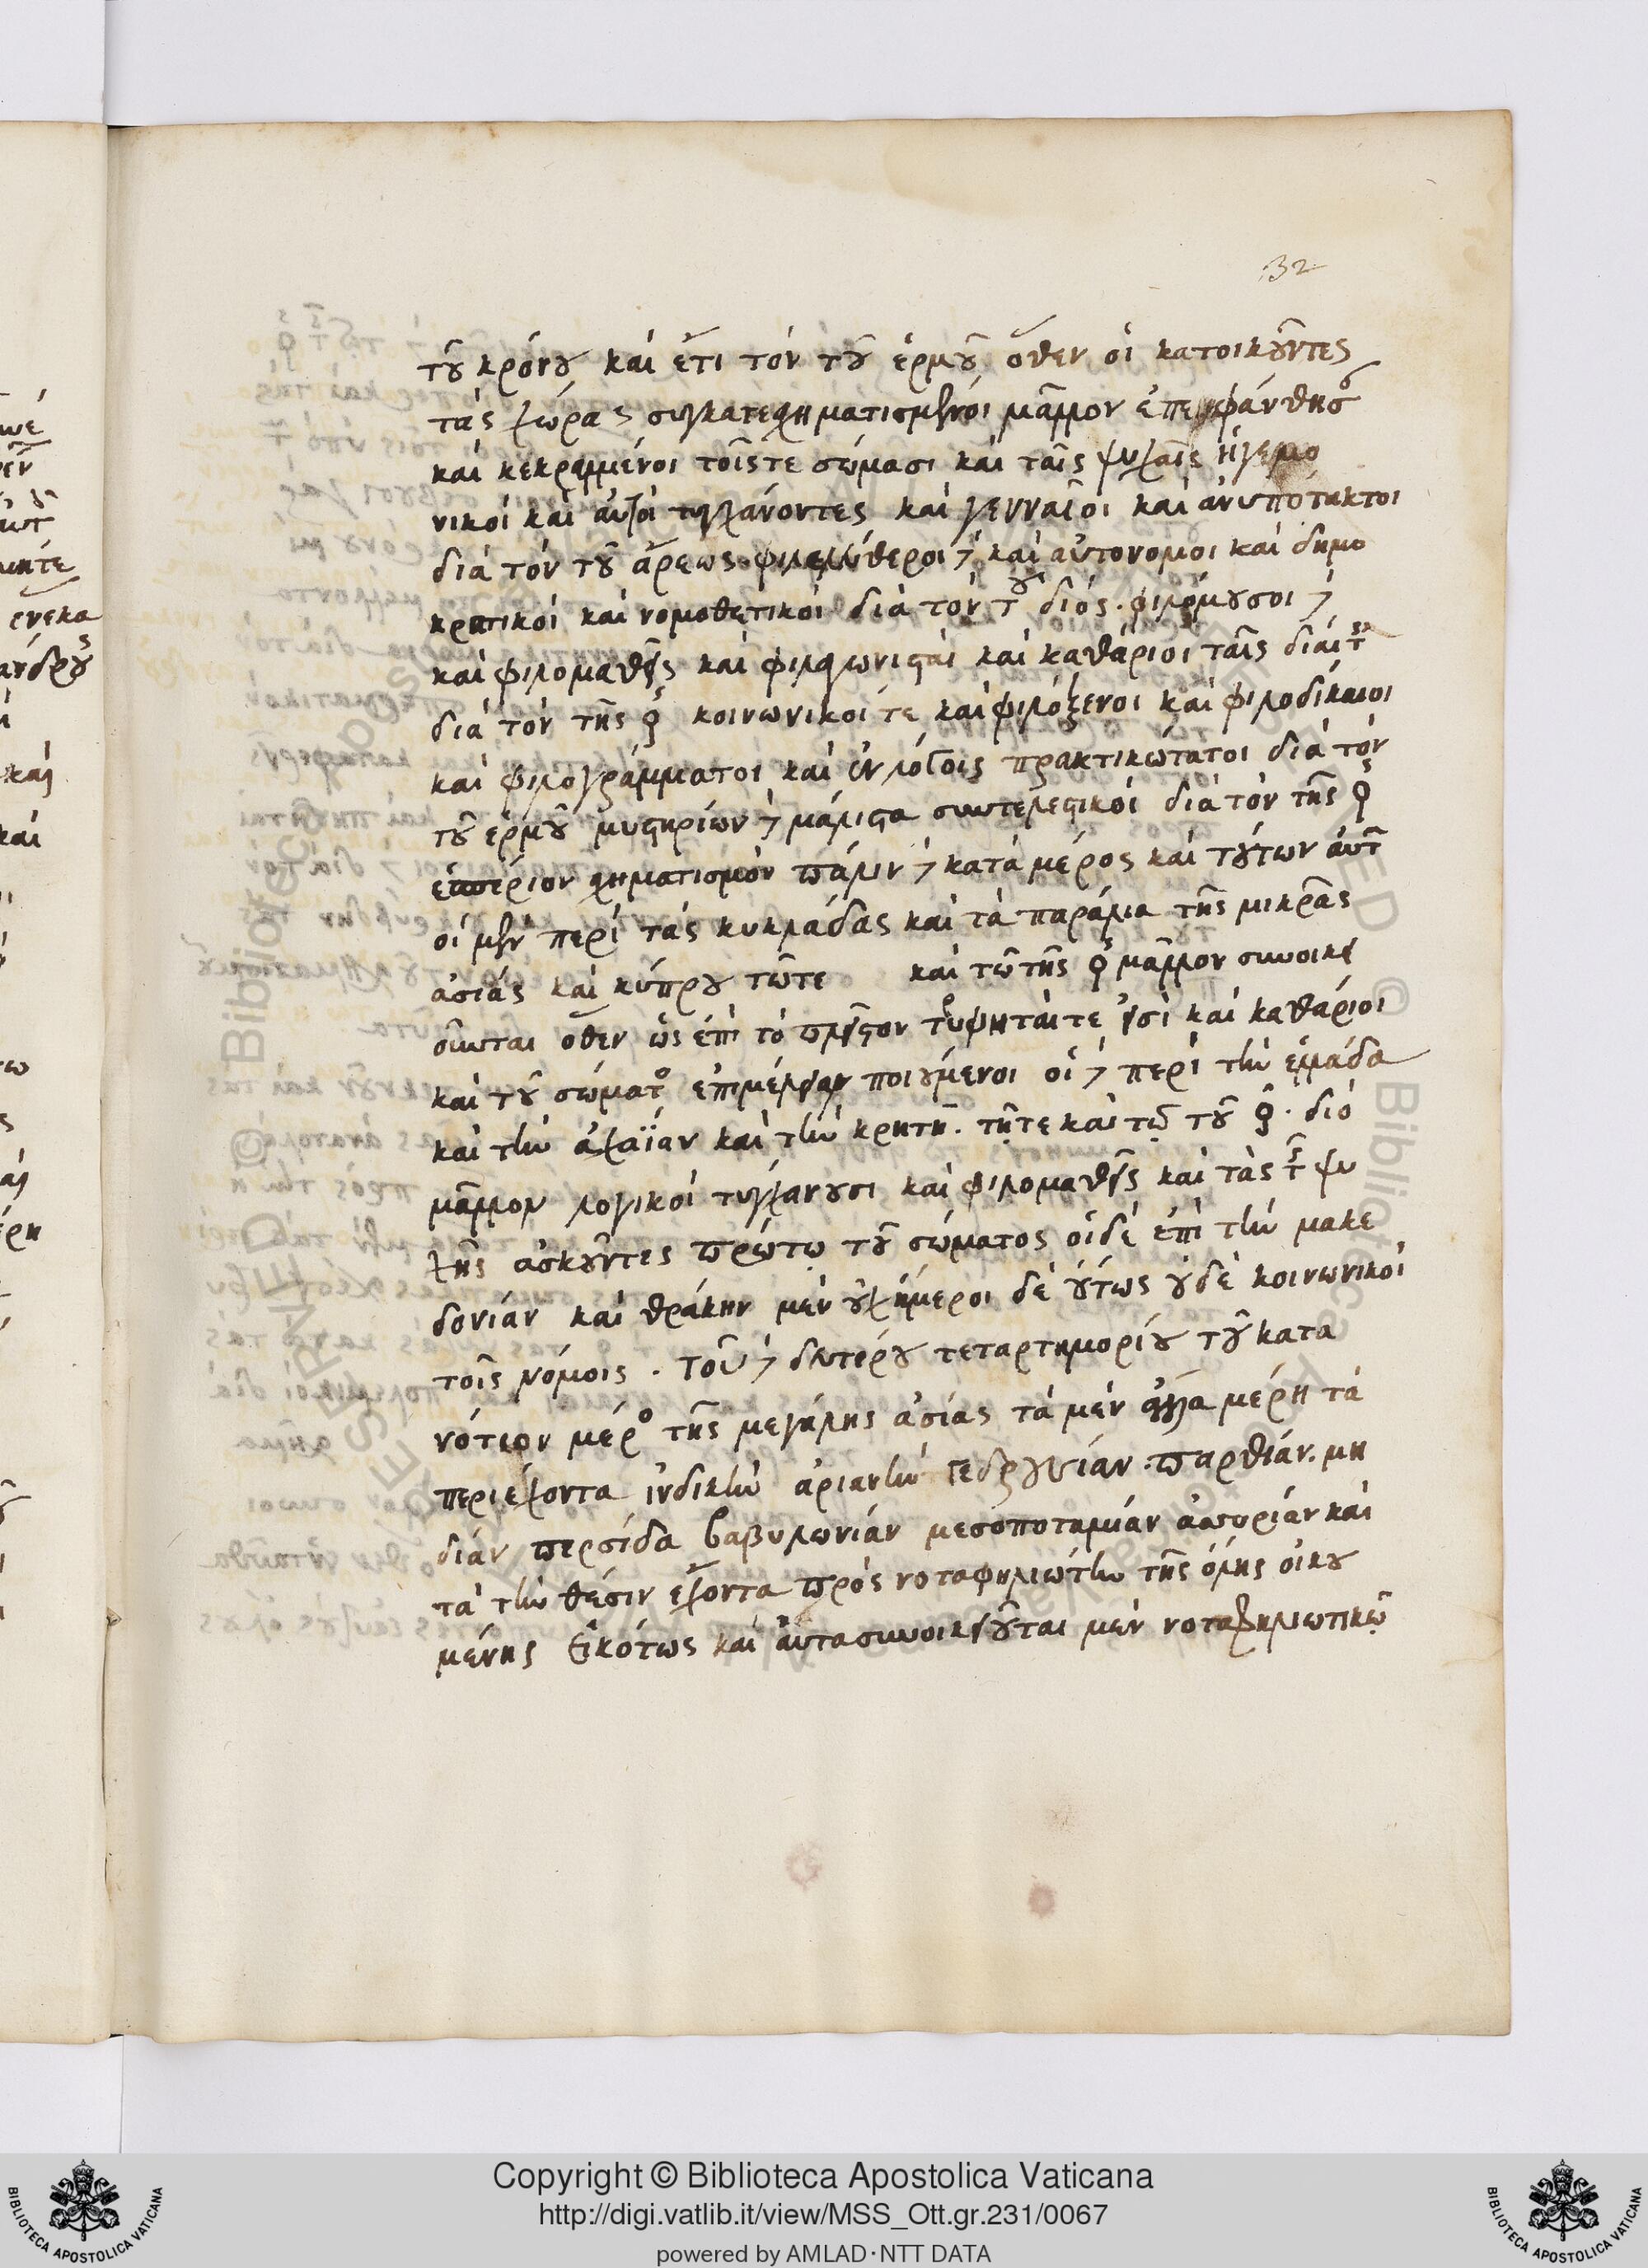 32
τοῦ κρόνου καὶ ἔτι τὸν τοῦ ἑρμοῦ ὅθεν οἱ κατοικοῦντες
τὰς χώρας συγκατεσχηματισμένοι μᾶλλον
καὶ κεκραμμένοι τοῖς τε σώμασι καὶ ταῖς ψυχαῖς ἡγεμο
νικοὶ καὶ αὐτοὶ τυγχάνοντες καὶ γενναῖοι καὶ ἀνυπότακτοι
διὰ τὸν τοῦ ἄρεως φιλελεύθεροι δὲ καὶ αὐτόνομοι καὶ δημο
κρατικοὶ καὶ νομοθετικοὶ διὰ τὸν τοῦ διός. φιλόμουσοι δὲ
καὶ φιλομαθεῖς καὶ φιλαγωνισταὶ καὶ καθάριοι ταῖς διαίτ
διὰ τὸν τῆς ♀ κοινωνικοί τε καὶ φιλόξενοι καὶ φιλοδίκαιοι
καὶ φιλογράμματοι καὶ ἐν λόγοις πρακτικώτατοι διὰ τὸν
τοῦ ἑρμοῦ μυστηρίων δὲ μάλιστα συντελεστικοὶ διὰ τὸν τῆς ♀
ἑσπέριον σχηματισμὸν πάλιν δὲ κατὰ μέρος καὶ τούτων αὐτ
οἱ μὲν περὶ τὰς κυκλάδας καὶ τὰ παράλια τῆς μικρᾶς
ἀσίας καὶ κύπρου τῶ τε καὶ τῶ τῆς ♀ μᾶλλον συνοικει
οῦνται ὅθεν ὡς ἐπὶ τὸ πλεῖστον τρυφηταί τε εἰσὶ καὶ καθάριοι
καὶ τοῦ σώματος ἐπιμέλειαν ποιούμενοι οἱ δὲ περὶ τὴν ἑλλάδα
καὶ τὴν ἀχαΐαν καὶ τὴν κρήτη. τῆ τε καὶ τῶ τοῦ ☿. διὸ
μᾶλλον λογικοὶ τυγχάνουσι καὶ φιλομαθεῖς καὶ τὰς τ ψυ
χῆς ἀσκοῦντες πρώτω τοῦ σώματος οἱ δὲ ἐπὶ τὴν μακε
δονίαν καὶ θράκην μὲν οὐχ ἥμεροι δὲ οὕτως οὐδὲ κοινωνικοὶ
τοῖς νόμοις. τοῦ δὲ δευτέρου τεταρτημορίου τοῦ κατὰ
νότιον μέρος τῆς μεγάλης ἀσίας τὰ μὲν ἄλλα μέρη τὰ
περιέχοντα ἰνδικὴν ἀριανὴν γεδρουσίαν. παρθίαν. μη
δίαν περσίδα βαβυλωνίαν μεσοποταμίαν ἀσσυρίαν καὶ
τὰ τὴν θέσιν ἔχοντα πρὸς νοταφηλιώτην τῆς ὅλης οἰκου
μένης εἰκότως καὶ αὐτὰ συνοικειοῦται μὲν νοταπηλιωτικῶ
Copyright © Biblioteca Apostolica Vaticana
http://digi.vatlib.it/view/MSS_Ott.gr.231/0067
powered by AMLAD·NTT DATA